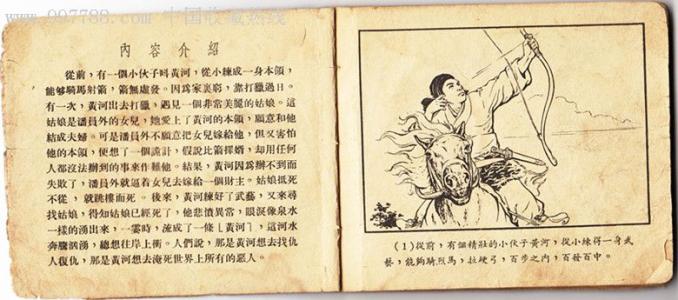 www.997788.com 中国收藏热线
內容介紹
從前，有一個小伙子叫黃河，從小練成一身本領，
能够騎馬射箭，箭無虛發。因爲家裏窮，靠打獵過日。
有一次，黃河出去打獵，遇見一個非常美麗的姑娘。這
姑娘是潘員外的女兒，她愛上了黃河的本領，願意和他
結成夫婦。可是潘員外不願意把女兒嫁給他，但又害怕
他的本領，便想了一個詭計，假說比箭擇婿，却用任何
人都沒法辦到的事來作難他。結果，黃河因爲辦不到而
失敗了，潘員外就逼着女兒去嫁給一個財主。姑娘抵死
不從，就跳樓而死。後來，黃河練好了武藝，又來尋
找姑娘，得知姑娘已經死了，他悲憤異常，眼淚像泉水
一樣的湧出來，一霎時，流成了一條〔黃河〕，這河水
奔騰洶湧，總想往岸上衝。人們說，那是黃河想去找仇
人復仇，那是黃河想去淹死世界上所有的惡人。
（1）從前，有個精壯的小伙子黃河，從小練得一身武
藝，能夠騎烈馬，拉硬弓，百步之內，百發百中。